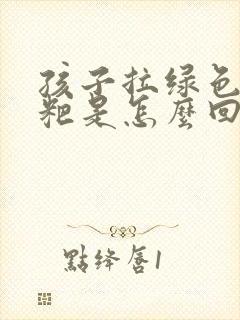 孩子拉绿色
粑是怎麼回
點绛唇1